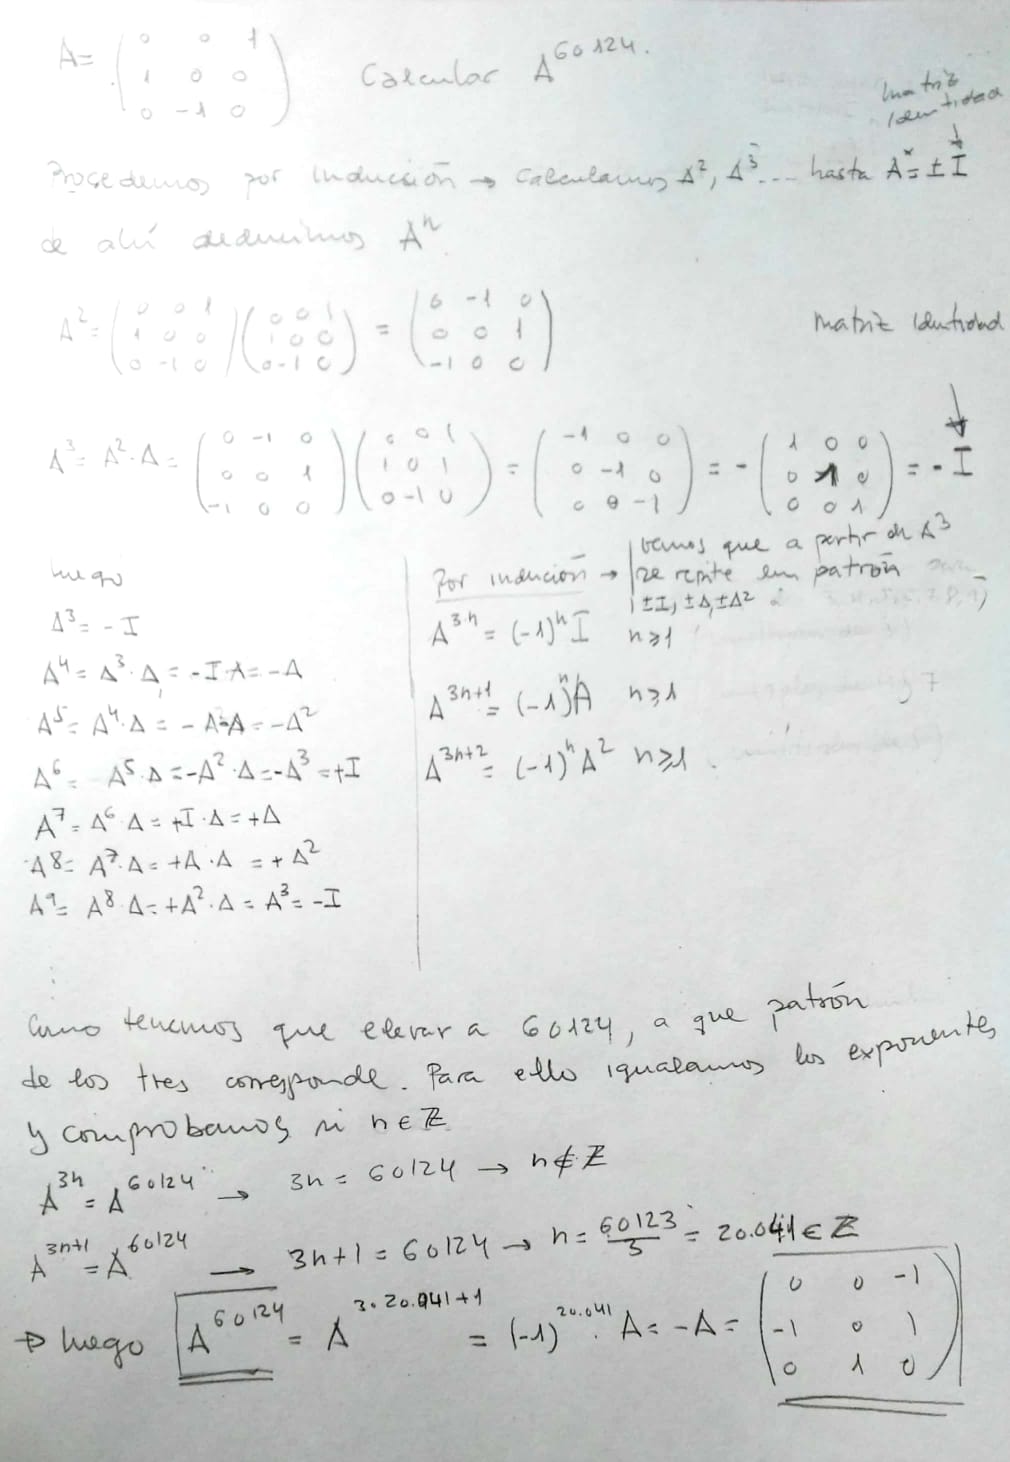 A = ( 0 0 1 / 1 0 0 / 0 -1 0 ) Calcular A^60124.
matriz identidad ↓
Procedemos por inducción → Calculamos A², A³ ... hasta A^x = ± I
de ahí deducimos A^n.
A² = ( 0 0 1 / 1 0 0 / 0 -1 0 ) ( 0 0 1 / 1 0 0 / 0 -1 0 ) = ( 0 -1 0 / 0 0 1 / -1 0 0 )
matriz identidad ↓
A³ = A²·A = ( 0 -1 0 / 0 0 1 / -1 0 0 ) ( 0 0 1 / 1 0 1 / 0 -1 0 ) = ( -1 0 0 / 0 -1 0 / 0 0 -1 ) = - ( 1 0 0 / 0 1 0 / 0 0 1 ) = - I
luego
A³ = - I
A⁴ = A³·A = -I·A = -A
A⁵ = A⁴·A = -A·A = -A²
A⁶ = A⁵·A = -A²·A = -A³ = +I
A⁷ = A⁶·A = +I·A = +A
A8 = A⁷·A = +A·A = +A²
A⁹ = A⁸·A = +A²·A = A³ = -I
⋮
Por indución → vemos que a partir de A³
se repite em patrón
±I, ±A, ±A²
A^3n = (-1)^n I n≥1
A^3n+1 = (-1)^n A n≥1
A^3n+2 = (-1)^n A² n≥1.
Como tenemos que elevar a 60124, a que patrón
de los tres corresponde. Para ello igualamos los exponentes
y comprobamos si n∈ℤ
A^3n = A^60124 → 3n = 60124 → n∉ℤ
A^3n+1 = A^60124 → 3n+1 = 60124 → n = 60123/3 = 20.041 ∈ ℤ
⇒ luego A^60124 = A^3·20.041+1 = (-1)^20.041 · A = -A = ( 0 0 -1 / -1 0 1 / 0 1 0 )